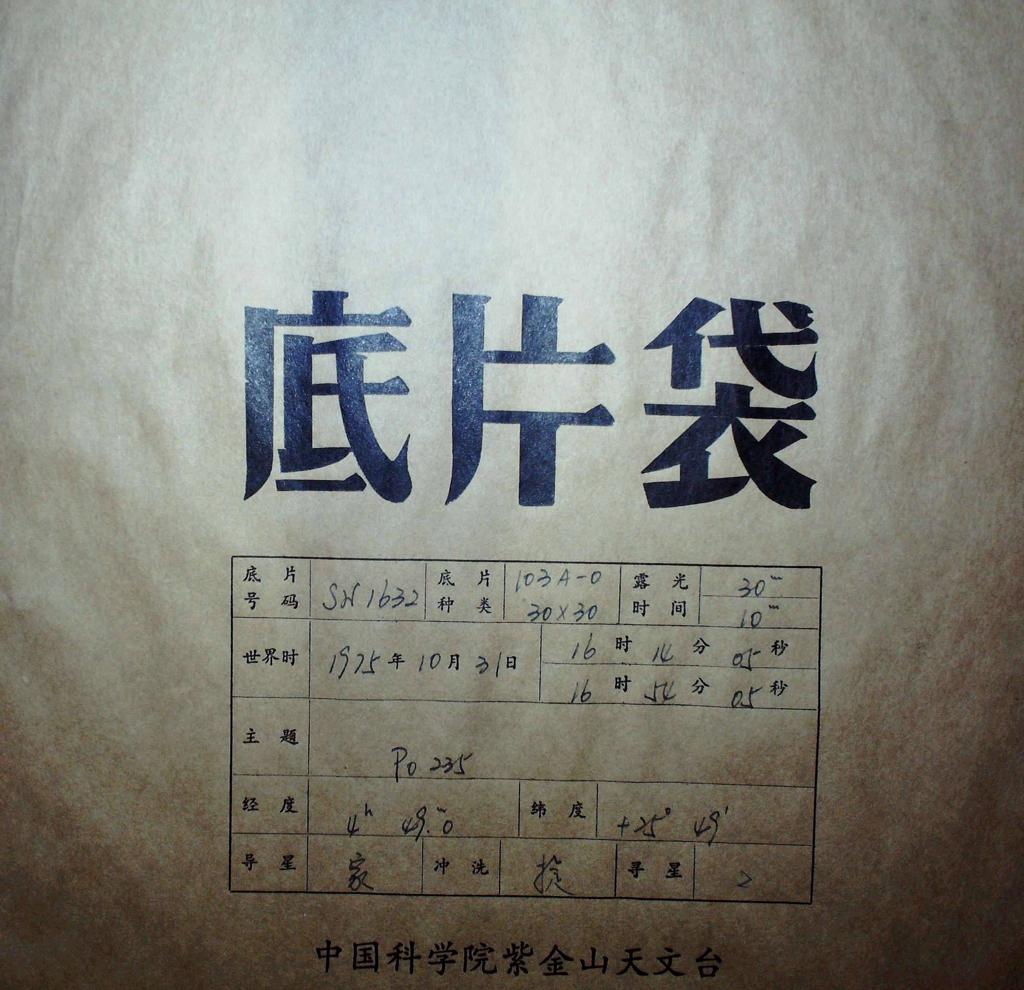 底片袋
底片号码 SN 1632 底片种类 103A-O 30×30 露光时间 30m 10m
世界时 1975年10月31日 16时14分05秒
16时54分05秒
主题 Po 235
经度 4h 49.m0 纬度 +25° 49'
导星 家 冲洗 寻星 2
中国科学院紫金山天文台